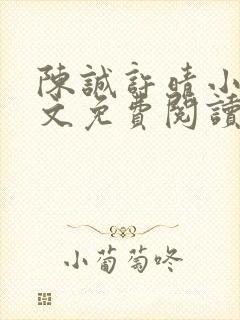 陳誠許晴小
文免費閱讀
小葡萄咚